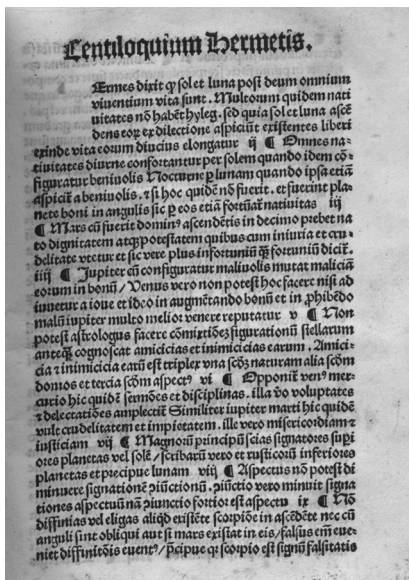 Centiloquium Hermetis.
Ermes dixit ꝙ sol et luna post deum omnium
viuentium vita sunt. Multorum quidem nati
uitates nō habēt hyleg. sed quia sol et luna ascē
dens eoꝝ ex dilectione aspiciūt existentes liberi
exinde vita eorum diucius elongatur ij ¶ Omnes na⸗
tiuitates diurne confortantur per solem quando idem cō⸗
figuratur beniuolis Nocturne ꝑ lunam quando ipsa etiā
aspiciť a beniuolis. ⁊ si hoc quidē nō fuerit. et fuerint pla⸗
nete boni in angulis sic ꝑ eos etiā fortūať natiuitas iij
¶ Mars cū fuerit dominꝰ ascendētis in decimo prebet na⸗
to dignitatem atqꝫ potestatem quibus cum iniuria et cru⸗
delitate vtetur et sic vere plus infortuniū qꝫ̄ fortuniū diciť.
iiij ¶ Jupiter cū configuratur maliuolis mutat maliciā
eorum in bonū / Venus vero non potest hoc facere nisi ad
iuuetur a ioue et ideo in augmētando bonū et in ꝓhibēdo
malū iupiter multo melior venere reputatur v ¶ Non
potest astrologus facere cōmixtiōeʒ figurationū stellarum
anteqꝫ̄ cognoscat amicicias et inimicicias earum. Amici⸗
cia ⁊ inimicicia earū est triplex vna scdʒ naturam alia scdm
domos et tercia scdm aspectꝰ vi ¶ Opponiť venꝰ mer⸗
curio hic quidē sermōes et disciplinas. illa v̓o voluptates
⁊ delectatiōes amplectiť Similiter iupiter marti hic quidē
vult crudelitatem et impietatem. ille vero misericordiam ⁊
iusticiam vij ¶ Magnorū principū scias signatores supi
ores planetas vel solē / scribarū vero et rusticorū inferiores
planetas et precipue lunam viij ¶ Aspectus nō potest di
minuere signationē ꝯiūctionū. ꝯiūctio vero minuit signa
tiones aspectuū nā ꝯiunctio fortior est aspectu ix ¶ Nō
diffinias vel eligas aliqd existēte scorpiōe in ascēdēte nec cū
anguli sint obliqui aut si mars existat in eis / falsus em̄ eue⸗
niet diffinitōis euentꝰ / p̄cipue qꝛ scorpio est signū falsitatis